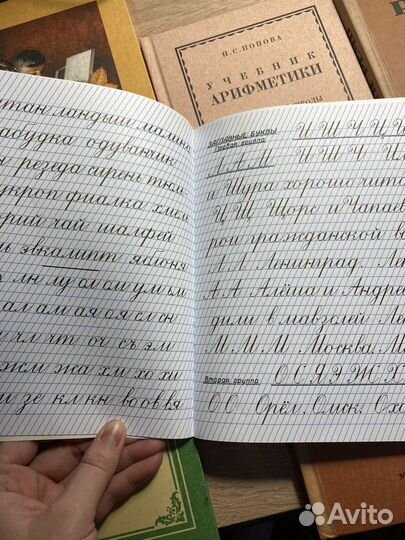 Н.С.ПОПОВА
УЧЕБНИК
АРИФМЕТИКИ
ландыш малина
одуванчик
резеда сирень тюль
укроп фиалка хмель
чай шалфей
эвкалипт яблоня
лн лу ол ом ум ым
ал ам ая оя сл сн
чл чт оч съ эл
жм жа хм хо хи
зе кл кн во ов вя
ЗАГЛАВНЫЕ БУКВЫ
Первая группа
И Ш Ч Ц Щ
Л А М И Ш Ч Ц
и Шура хорошо чита
Ц Щ Щорс и Чапаев
рои гражданской во
Л Л Ленинград. Ле
А А Алёша и Андре
дили в мавзолей Лен
М М М Москва. М
Вторая группа О С Я Э Ж Х
О О Орёл. Омск. Оха
Avito